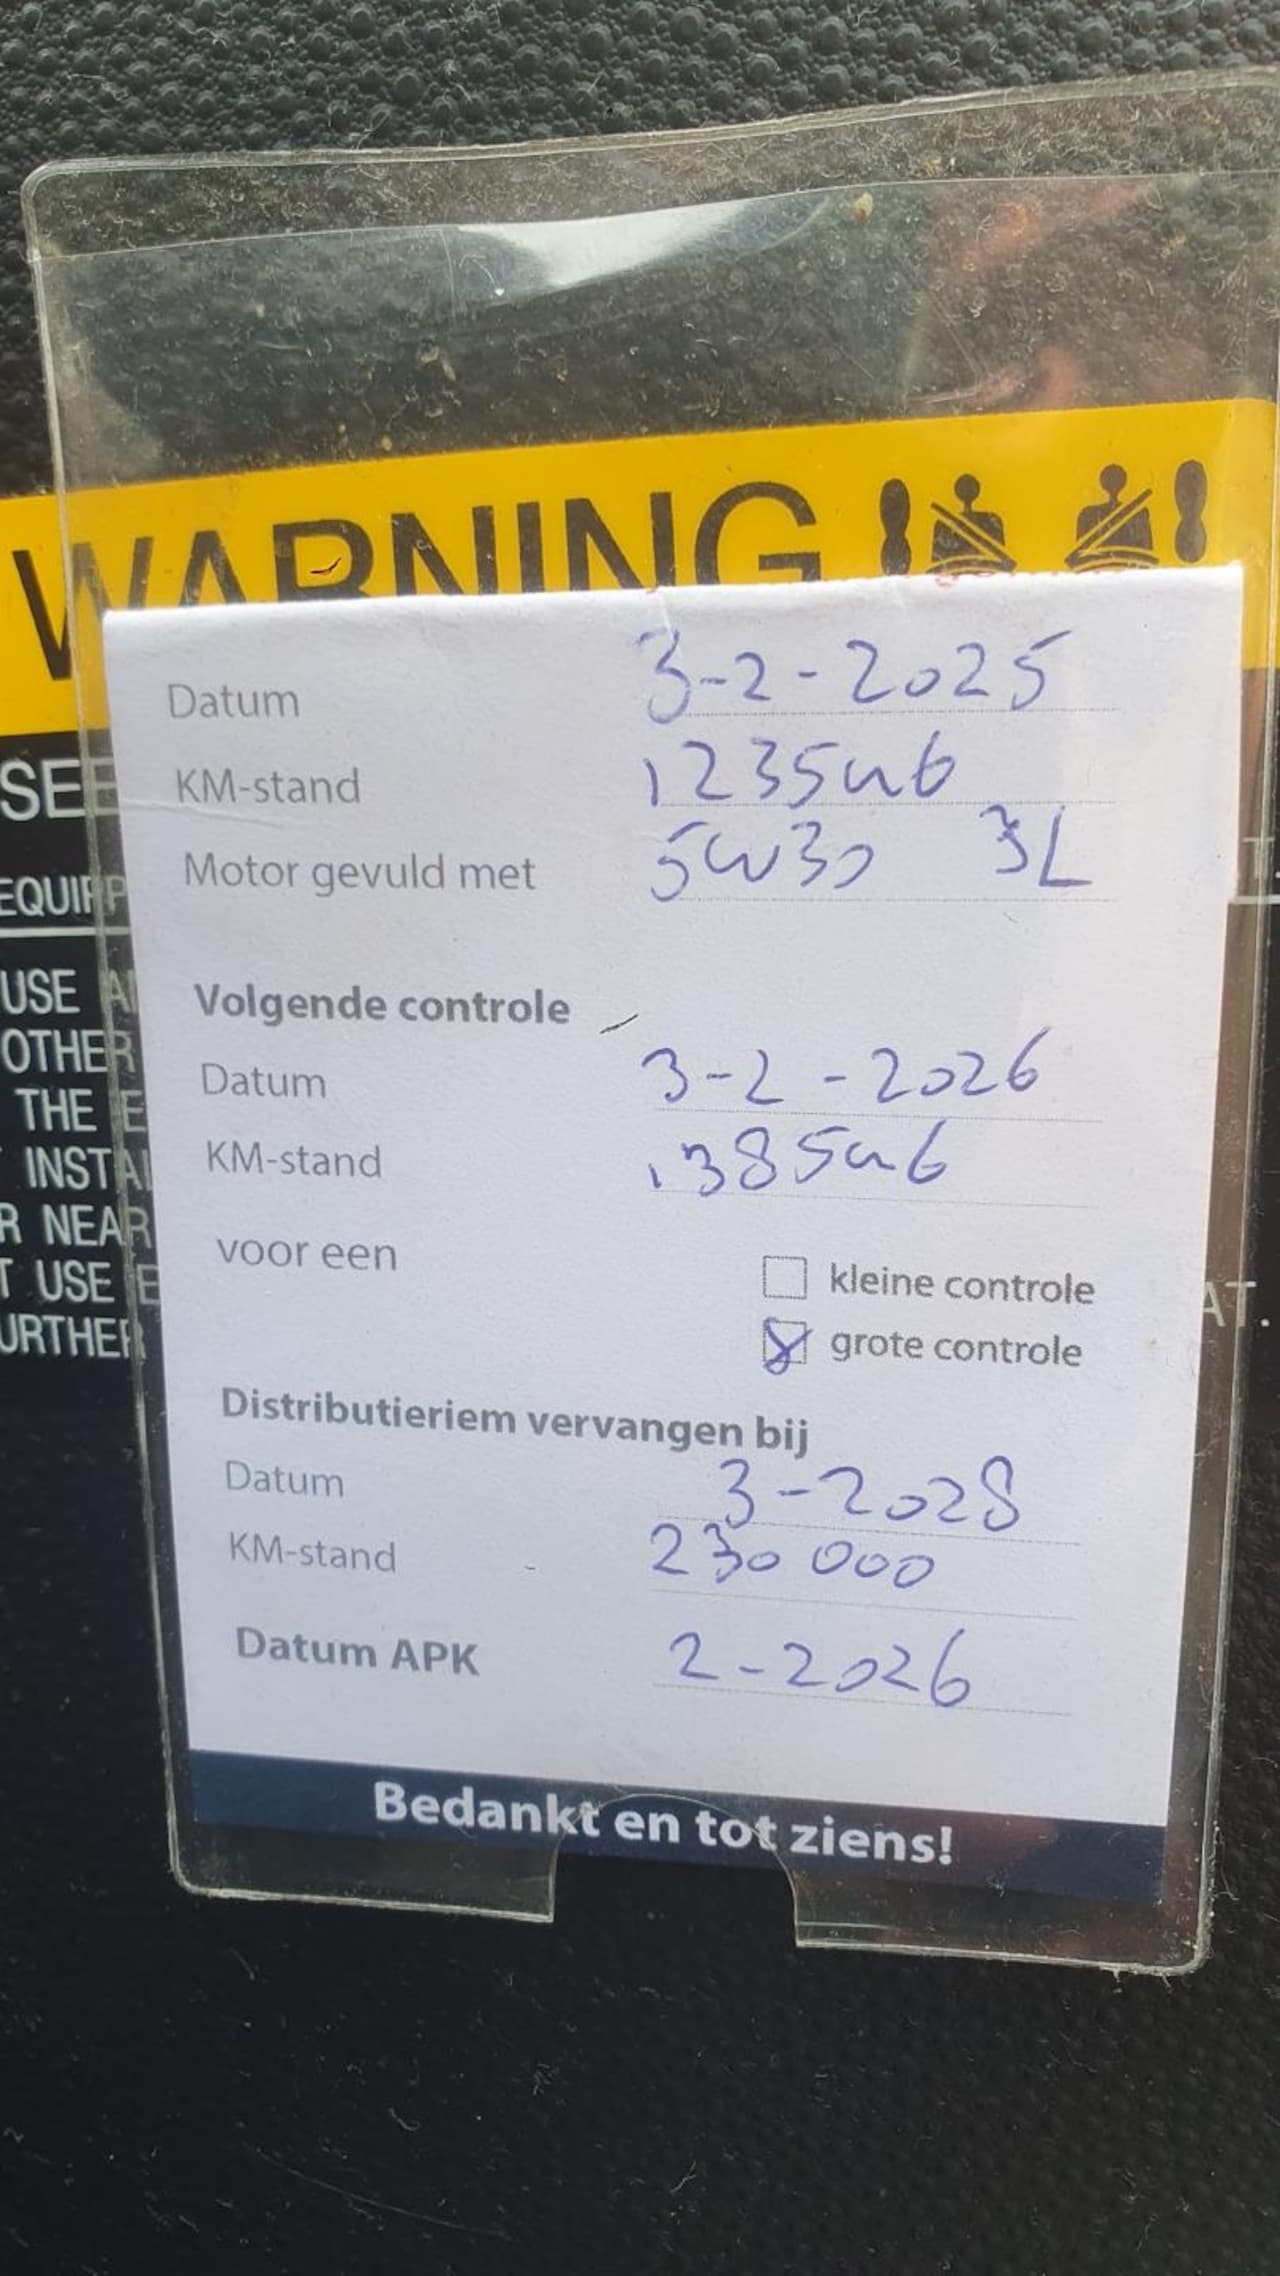 WARNING
SEE
EQUIPP
USE A
OTHER
THE E
INSTA
R NEAR
T USE E
URTHER
AT.
Datum 3-2-2025
KM-stand 123546
Motor gevuld met 5W30 3L
Volgende controle
Datum 3-2-2026
KM-stand 138546
voor een
kleine controle
grote controle
Distributieriem vervangen bij
Datum 3-2028
KM-stand 230 000
Datum APK 2-2026
Bedankt en tot ziens!